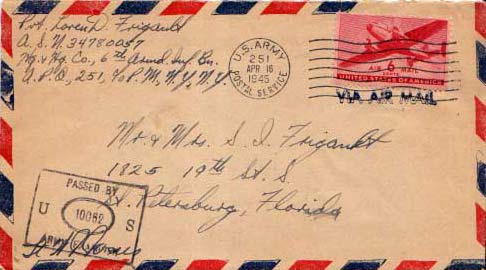 Pvt. Loren D. Frigault
A.S.N. 34780057
Hq. & Hq. Co., 6th Armd. Inf. Bn.
A.P.O. 251, c/o P.M., N.Y., N.Y.
U.S. ARMY
251
APR 16
1945
POSTAL SERVICE
AIR 6 MAIL
CENTS
UNITED STATES OF AMERICA
VIA AIR MAIL
Mr. & Mrs. S. I. Frigault
1825 19th St. S
St. Petersburg, Florida
PASSED BY
U 10082 S
ARMY EXAMINER